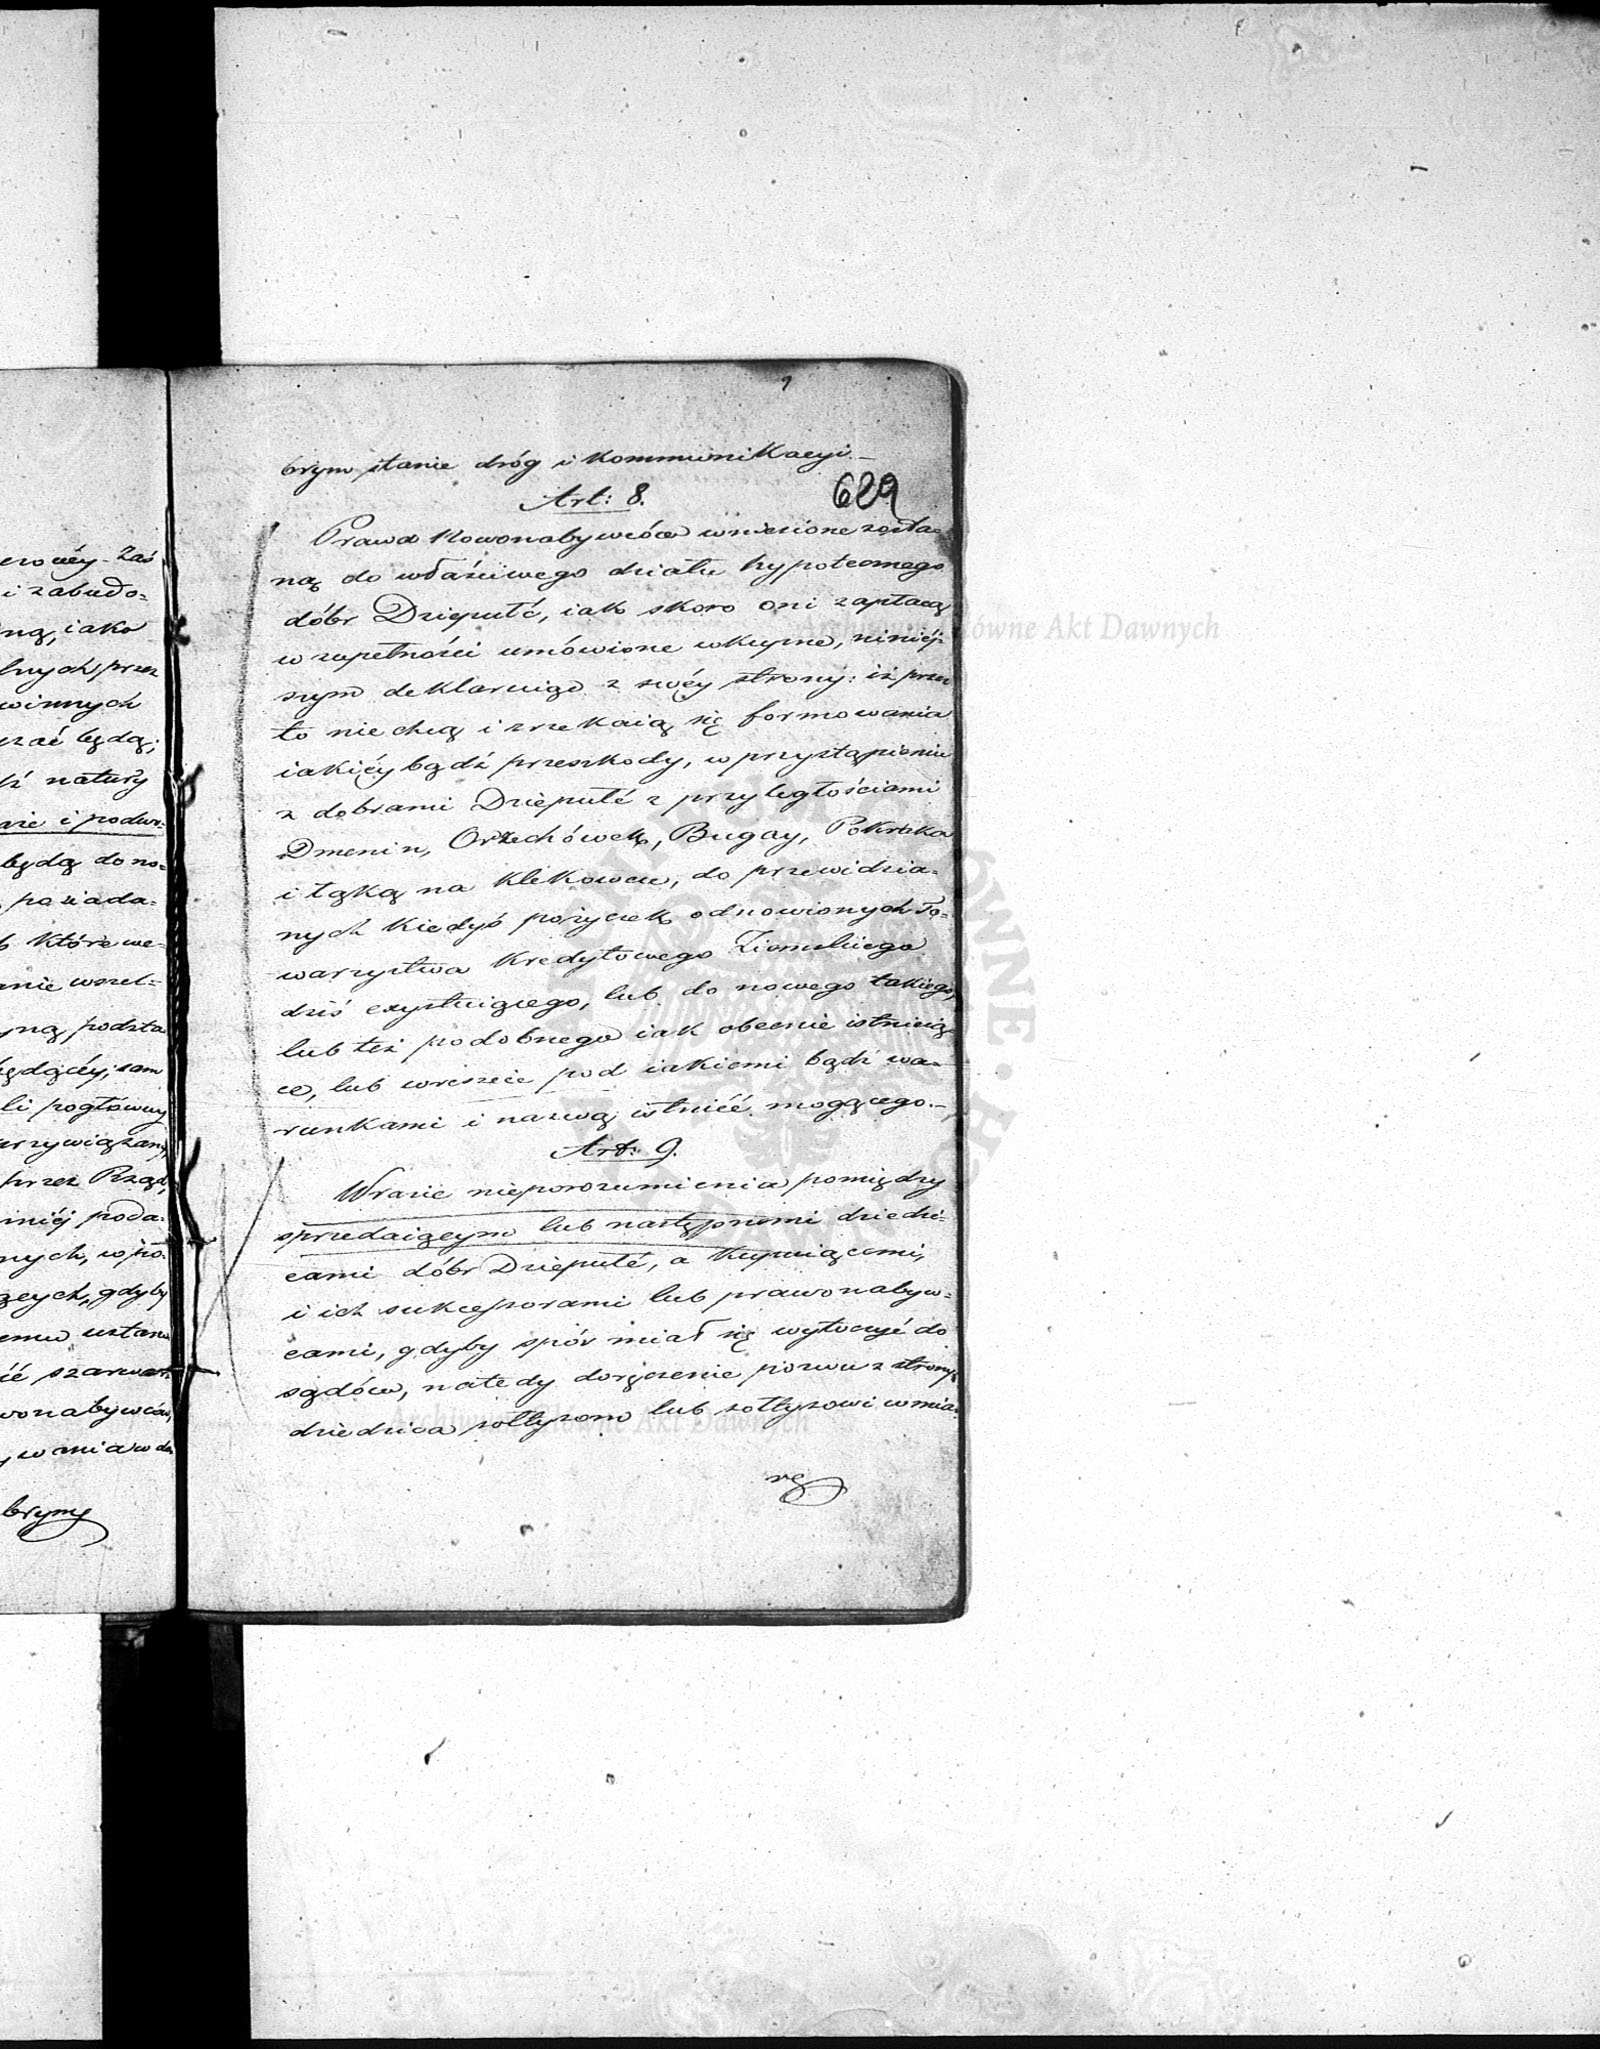 erowéy. Zaś
i zabudo=
ną, iako
lnych przez
winnych
czać będą;
natury
nie i podwo=
będą do no=
posiada=
które we=
anie wszel=
yną, podsta
będącéy; sam
li pogłówny
przywiązany,
przez Rząd,
niniéj poda=
nych, w po=
gdyby
emu ustano
szarwar=
wonabywców,
brym
brym stanie dróg i kommunikacyi. —
689
Art: 8.
Prawa Nowonabywców wniesione zosta=
ną do właściwego działu hypotecznego
dóbr Dziepułć, iak skoro oni zapłacą
w zupełności umówione wkupne, niniéj=
szym deklaruiąc z swéy strony: iż przez
to nie chcą i zrzekaią się formowania
iakiéy bądź przeszkody, w przystąpieniu
z dobrami Dziepułć z przyległościami
Dmenin, Orzechówek, Bugay, Pokrzka
i łąką na Klekowcu, do przewidzia=
nych kiedyś pożyczek odnowionych To=
warzystwa Kredytowego Ziemskiego
dziś exystuiącego, lub do nowego takiego,
lub też podobnego iak obecnie istnieią=
ce, lub wreszcie pod iakiemi bądź wa=
runkami i nazwą istnieć mogącego. —
Art: 9.
W razie nieporozumienia pomiędzy
sprzedaiącym lub następnemi dziedzi=
cami dóbr Dziepułć, a kupuiącemi,
i ich sukcessorami lub prawonabyw=
cami, gdyby spór miał się wytoczyć do
sądów, natedy doręczenie pozwu z strony
dziedzica sołtysom lub sołtysowi w mia=
Archiwum Główne Akt Dawnych
Archiwum Główne Akt Dawnych